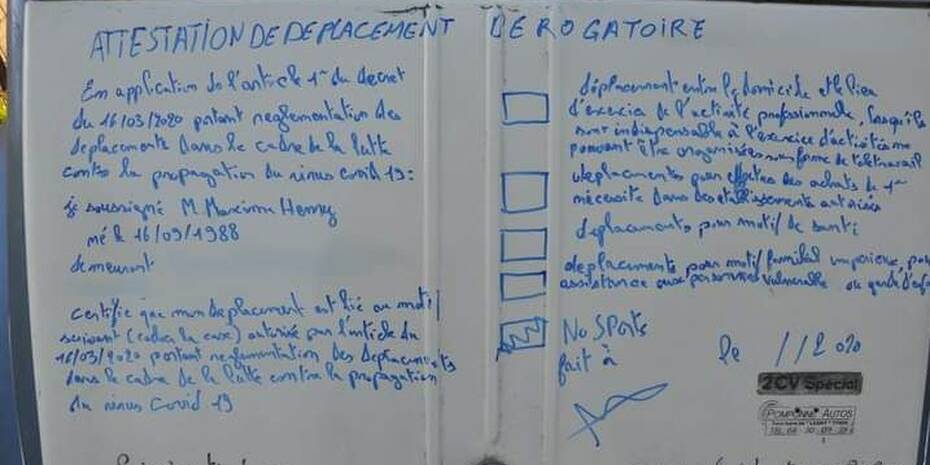 ATTESTATION DE DEPLACEMENT DEROGATOIRE
En application de l'article 1er du decret
du 16/03/2020 portant reglementation des
deplacements dans le cadre de la lutte
contre la propagation du virus Covid 19:
je soussigné M Maxime Henry
né le 16/09/1988
demeurant
certifie que mon deplacement est lié au motif
suivant (cocher la case) autorisé par l'article du
16/03/2020 portant reglementation des deplacements
dans le cadre de la lutte contre la propagation
du virus Covid 19
déplacement entre le domicile et le lieu
d'exercice de l'activité professionnelle, lorsqu'ils
sont indispensable à l'exercice d'activités ne
pouvant être organisées sous forme de teletravail
deplacements pour effectuer des achats de 1er
nécessité dans des établissements autorisés
deplacements pour motif de santé
deplacements pour motif familial imperieux, pour
assistance aux personnes vulnerable ou garde d'enfa
No SPorts
fait à le / / 2020
2CV Spécial
POMPONNE AUTOS